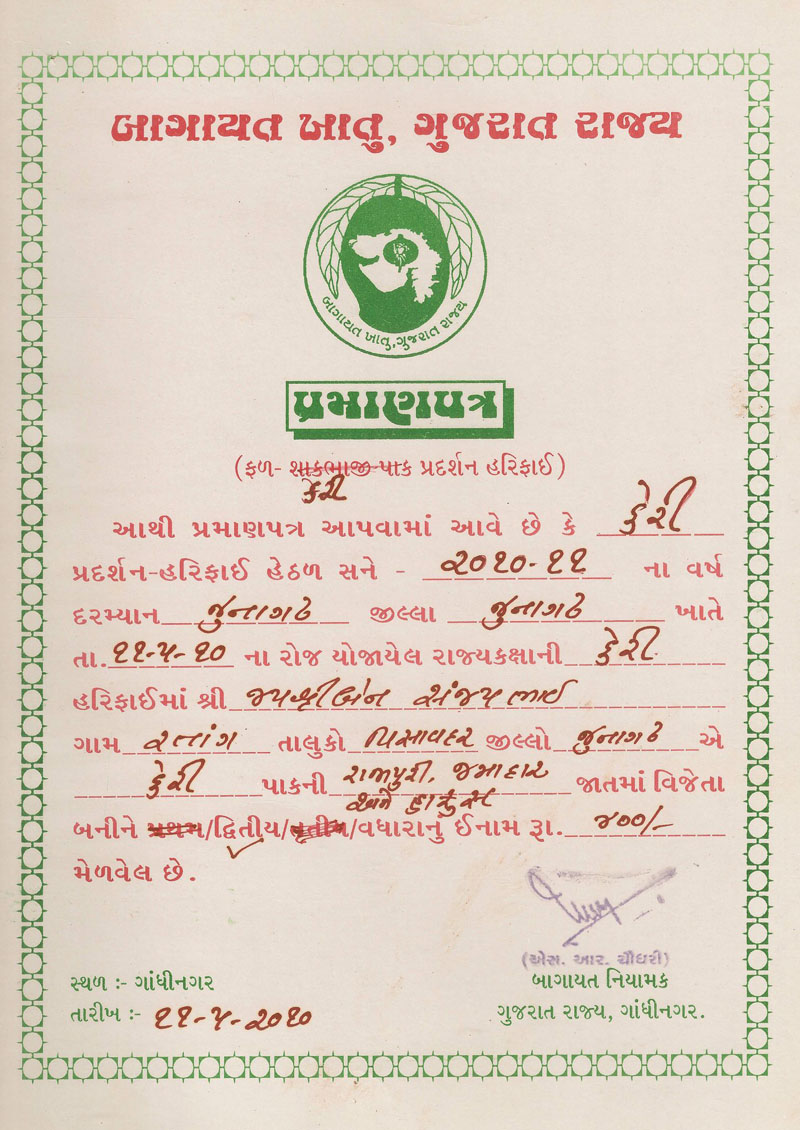 બાગાયત ખાતુ, ગુજરાત રાજ્ય
બાગાયત ખાતુ, ગુજરાત રાજ્ય
પ્રમાણપત્ર
(ફળ- શાકભાજી પાક પ્રદર્શન હરિફાઈ)
કેરી
આથી પ્રમાણપત્ર આપવામાં આવે છે કે કેરી
પ્રદર્શન-હરિફાઈ હેઠળ સને - ૨૦૧૦-૧૧ ના વર્ષ
દરમ્યાન જુનાગઢ જીલ્લા જુનાગઢ ખાતે
તા. ૧૧-૫-૧૦ ના રોજ યોજાયેલ રાજ્યકક્ષાની કેરી
હરિફાઈમાં શ્રી જયશ્રીબેન સંજયભાઈ
ગામ રતાંગ તાલુકો વિસાવદર જીલ્લો જુનાગઢ એ
કેરી પાકની રાજાપુરી, જમાદાર જાતમાં વિજેતા
અને હાફુસ
બનીને પ્રથમ/દ્વિતીય/તૃતીય/વધારાનું ઈનામ રૂા. ૪૦૦/-
મેળવેલ છે.
(એસ. આર. ચૌધરી)
સ્થળ :- ગાંધીનગર
બાગાયત નિયામક
તારીખ :- ૧૧-૫-૨૦૧૦
ગુજરાત રાજ્ય, ગાંધીનગર.